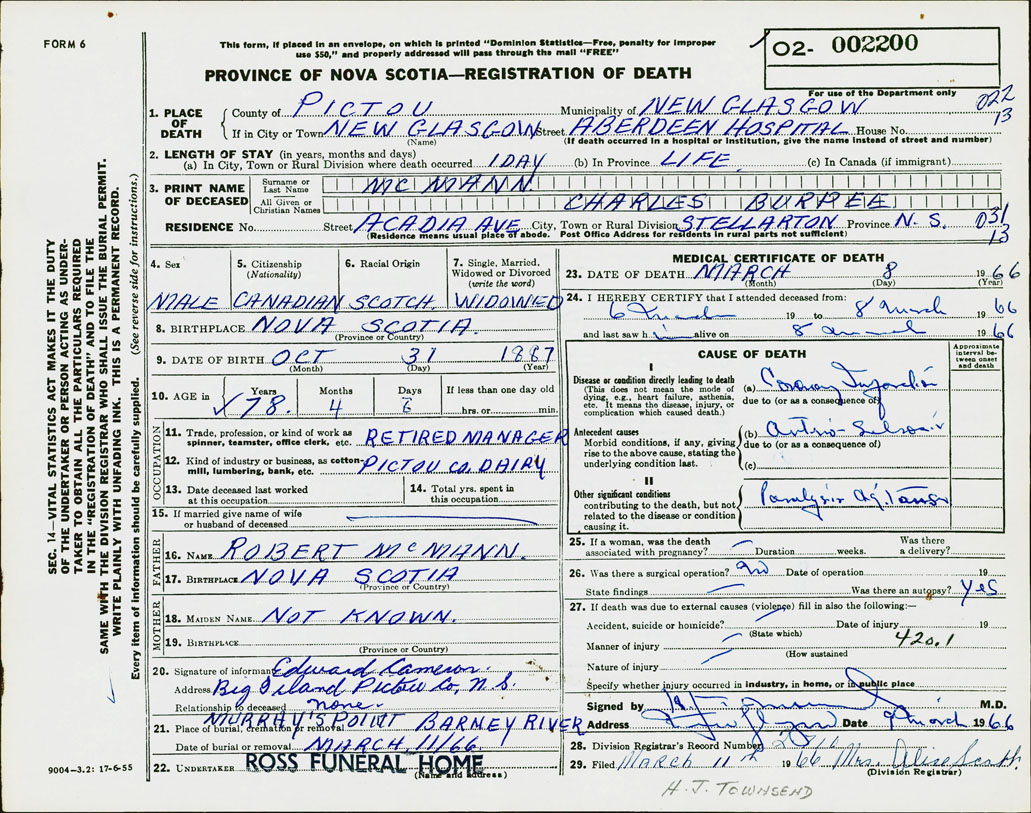 FORM 6
This form, if placed in an envelope, on which is printed "Dominion Statistics—Free, penalty for improper
use $50," and properly addressed will pass through the mail "FREE"
O2- 002200
For use of the Department only
PROVINCE OF NOVA SCOTIA—REGISTRATION OF DEATH
022
13
1. PLACE OF DEATH
County of PICTOU Municipality of NEW GLASGOW
If in City or Town NEW GLASGOW Street ABERDEEN HOSPITAL House No.
(Name) (If death occurred in a hospital or institution, give the name instead of street and number)
2. LENGTH OF STAY (in years, months and days)
(a) In City, Town or Rural Division where death occurred 1 DAY (b) In Province LIFE (c) In Canada (if immigrant)
3. PRINT NAME OF DECEASED
Surname or Last Name MCMANN
All Given or Christian Names CHARLES BURPEE
RESIDENCE No. Street ACADIA AVE City, Town or Rural Division STELLARTON Province N. S.
(Residence means usual place of abode. Post Office Address for residents in rural parts not sufficient)
031
13
4. Sex
MALE
5. Citizenship
(Nationality)
CANADIAN
6. Racial Origin
SCOTCH
7. Single, Married,
Widowed or Divorced
(write the word)
WIDOWED
8. BIRTHPLACE NOVA SCOTIA
(Province or Country)
9. DATE OF BIRTH OCT 31 1887
(Month) (Day) (Year)
10. AGE in Years 78. Months 4 Days If less than one day old
hrs. or min.
OCCUPATION
11. Trade, profession, or kind of work as
spinner, teamster, office clerk, etc. RETIRED MANAGER
12. Kind of industry or business, as cotton-
mill, lumbering, bank, etc. PICTOU CO. DAIRY
13. Date deceased last worked
at this occupation
14. Total yrs. spent in
this occupation
15. If married give name of wife
or husband of deceased
FATHER
16. NAME ROBERT McMANN.
17. BIRTHPLACE NOVA SCOTIA
(Province or Country)
MOTHER
18. MAIDEN NAME NOT KNOWN.
19. BIRTHPLACE
(Province or Country)
20. Signature of informant Edward Cameron.
Address Big Island Pictou Co, N. S.
Relationship to deceased none.
21. Place of burial, cremation or removal MURRAY'S POINT BARNEY RIVER
Date of burial or removal MARCH 11/66.
22. UNDERTAKER ROSS FUNERAL HOME
(Name and address)
MEDICAL CERTIFICATE OF DEATH
23. DATE OF DEATH MARCH 8 1966
(Month) (Day) (Year)
24. I HEREBY CERTIFY that I attended deceased from:
6 March 19 to 8 March 1966
and last saw h i alive on 8 March 1966
CAUSE OF DEATH
Approximate
interval be-
tween onset
and death
I
Disease or condition directly leading to death
(This does not mean the mode of
dying, e.g., heart failure, asthenia,
etc. It means the disease, injury, or
complication which caused death.)
(a) Coronary Infarction
due to (or as a consequence of)
Antecedent causes
Morbid conditions, if any, giving
rise to the above cause, stating the
underlying condition last.
(b)
due to (or as a consequence of)
(c)
II
Other significant conditions
contributing to the death, but not
related to the disease or condition
causing it.
Paralysis
25. If a woman, was the death
associated with pregnancy? Duration weeks. Was there
a delivery?
26. Was there a surgical operation? no Date of operation 19
State findings Was there an autopsy? yes
27. If death was due to external causes (violence) fill in also the following:—
Accident, suicide or homicide? Date of injury 19
(State which)
Manner of injury 420.1
(How sustained
Nature of injury
Specify whether injury occurred in industry, in home, or in public place
Signed by M.D.
Address Date 9 March 1966
28. Division Registrar's Record Number
29. Filed March 11th 1966 Mrs. Alice Scott.
(Division Registrar)
H. J. TOWNSEND
SEC. 14—VITAL STATISTICS ACT MAKES IT THE DUTY
OF THE UNDERTAKER OR PERSON ACTING AS UNDER-
TAKER TO OBTAIN ALL THE PARTICULARS REQUIRED
IN THE "REGISTRATION OF DEATH" AND TO FILE THE
SAME WITH THE DIVISION REGISTRAR WHO SHALL ISSUE THE BURIAL PERMIT.
WRITE PLAINLY WITH UNFADING INK. THIS IS A PERMANENT RECORD.
Every item of information should be carefully supplied. (See reverse side for instructions.)
9004—3.2: 17-6-55